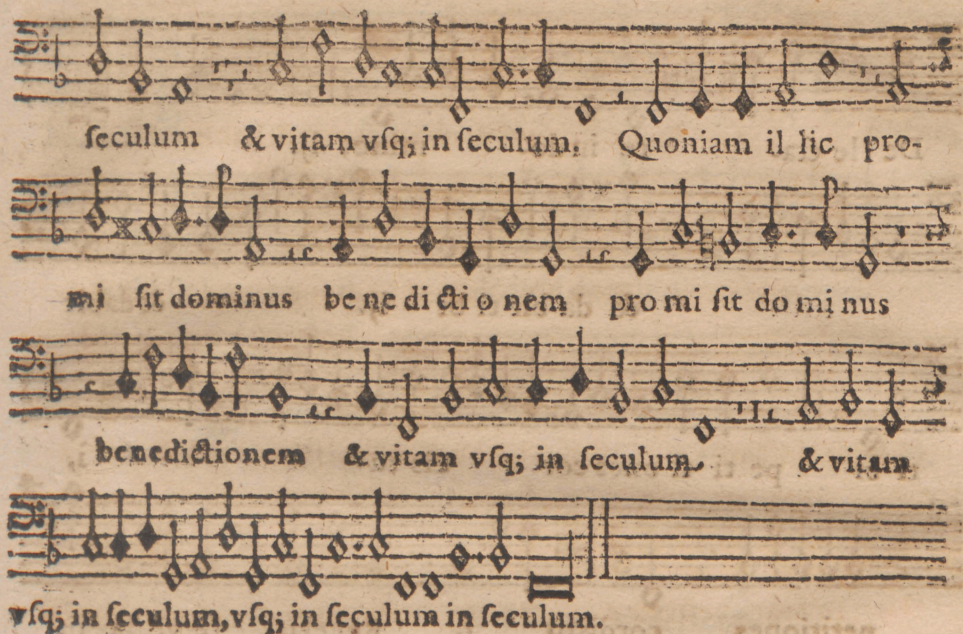 ſeculum & vitam vſq; in ſeculum. Quoniam il lic pro-
mi ſit dominus be ne di cti o nem pro mi ſit do mi nus
benedictionem & vitam vſq; in ſeculum. & vitam
vſq; in ſeculum, vſq; in ſeculum in ſeculum.